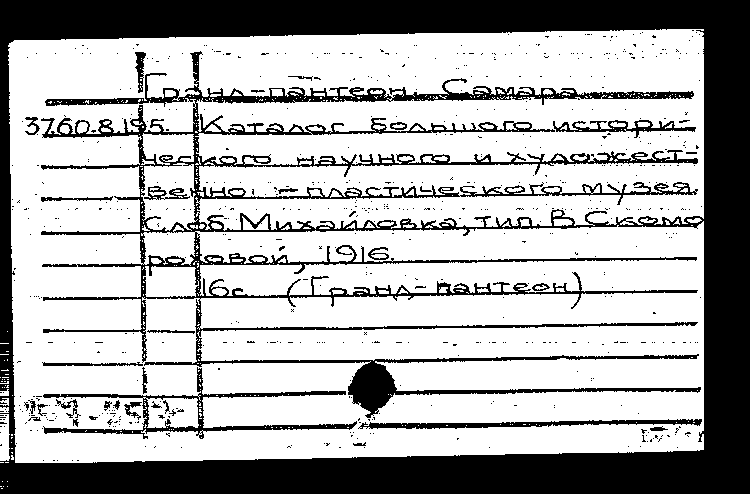 Гранд-пантеон. Самара
37.60.8.195. Каталог большого истори-
ческого научного и художест-
венно-пластического музея.
Слоб. Михайловка, тип. В. Скомо
роховой, 1916.
16с. (Гранд-пантеон)